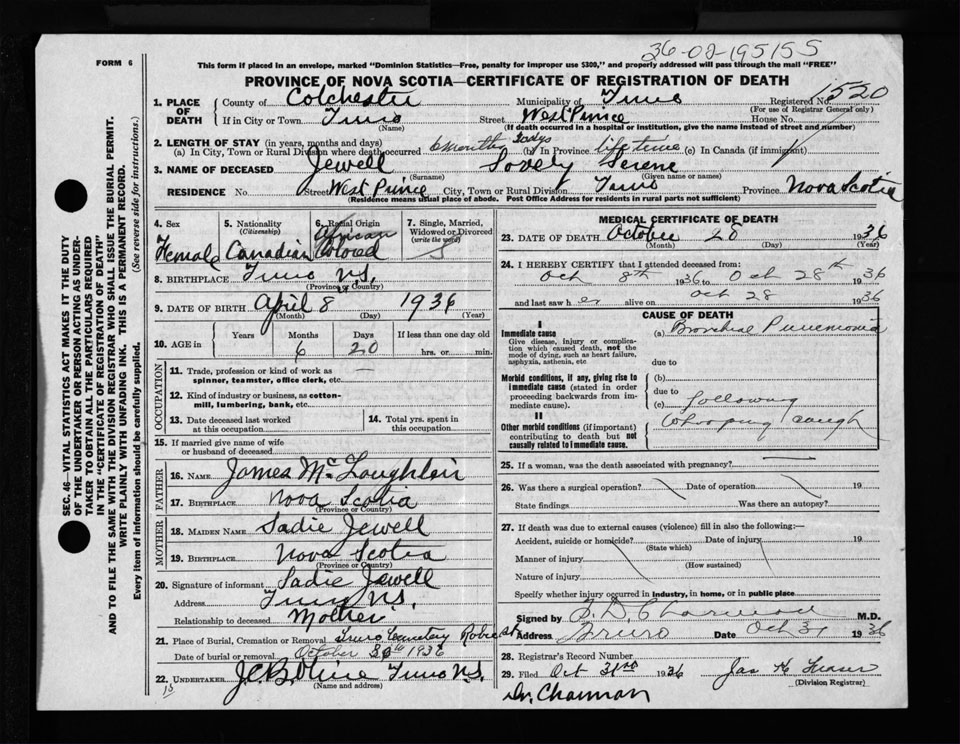 36-02-195155
FORM 6
This form if placed in an envelope, marked "Dominion Statistics—Free, penalty for improper use $300," and properly addressed will pass through the mail "FREE"
PROVINCE OF NOVA SCOTIA—CERTIFICATE OF REGISTRATION OF DEATH
SEC. 46—VITAL STATISTICS ACT MAKES IT THE DUTY
OF THE UNDERTAKER OR PERSON ACTING AS UNDER-
TAKER TO OBTAIN ALL THE PARTICULARS REQUIRED
IN THE "CERTIFICATE OF REGISTRATION OF DEATH"
AND TO FILE THE SAME WITH THE DIVISION REGISTRAR WHO SHALL ISSUE THE BURIAL PERMIT.
WRITE PLAINLY WITH UNFADING INK. THIS IS A PERMANENT RECORD.
Every item of information should be carefully supplied. (See reverse side for instructions.)
1. PLACE OF DEATH
County of Colchester Municipality of Truro Registered No. 1520
(For use of Registrar General only)
If in City or Town Truro Street West Prince House No.
(Name)
(If death occurred in a hospital or institution, give the name instead of street and number)
2. LENGTH OF STAY (in years, months and days)
(a) In City, Town or Rural Division where death occurred 6 months days (b) In Province life time (c) In Canada (if immigrant)
3. NAME OF DECEASED Jewell Lovely Serene
(Surname) (Given name or names)
RESIDENCE No. Street West Prince City, Town or Rural Division Truro Province Nova Scotia
(Residence means usual place of abode. Post Office Address for residents in rural parts not sufficient)
4. Sex Female
5. Nationality (Citizenship) Canadian
6. Racial Origin African Colored
7. Single, Married, Widowed or Divorced (write the word) S
8. BIRTHPLACE Truro N.S.
(Province or Country)
9. DATE OF BIRTH April 8 1936
(Month) (Day) (Year)
10. AGE in Years Months Days If less than one day old
6 20 hrs. or min.
OCCUPATION
11. Trade, profession or kind of work as spinner, teamster, office clerk, etc.
12. Kind of industry or business, as cotton-mill, lumbering, bank, etc.
13. Date deceased last worked at this occupation
14. Total yrs. spent in this occupation
15. If married give name of wife or husband of deceased
FATHER
16. NAME James McLoughlin
17. BIRTHPLACE Nova Scotia
(Province or Country)
MOTHER
18. MAIDEN NAME Sadie Jewell
19. BIRTHPLACE Nova Scotia
(Province or Country)
20. Signature of informant Sadie Jewell
Address Truro N.S.
Relationship to deceased Mother
21. Place of Burial, Cremation or Removal Truro Cemetery Robie St
Date of burial or removal October 30th 1936
22. UNDERTAKER Truro N.S.
(Name and address)
15
MEDICAL CERTIFICATE OF DEATH
23. DATE OF DEATH October 28 1936
(Month) (Day) (Year)
24. I HEREBY CERTIFY that I attended deceased from:
Oct 8th 1936 to Oct 28th 1936
and last saw her alive on Oct 28 1936
CAUSE OF DEATH
I
Immediate cause
Give disease, injury or complication which caused death, not the mode of dying, such as heart failure, asphyxia, asthenia, etc
(a) Bronchial Pneumonia
due to
Morbid conditions, if any, giving rise to immediate cause (stated in order proceeding backwards from immediate).
(b)
due to
(c) following
II
Other morbid conditions (if important) contributing to death but not causally related to immediate cause.
Whooping cough
25. If a woman, was the death associated with pregnancy?
26. Was there a surgical operation? Date of operation 19
State findings Was there an autopsy?
27. If death was due to external causes (violence) fill in also the following:—
Accident, suicide or homicide? Date of injury 19
(State which)
Manner of injury
(How sustained)
Nature of injury
Specify whether injury occurred in industry, in home, or in public place
Signed by M.D.
Address Truro Date Oct 31 1936
28. Registrar's Record Number
29. Filed Oct 31st 1936 Jas H
(Division Registrar)
Dr. Charman